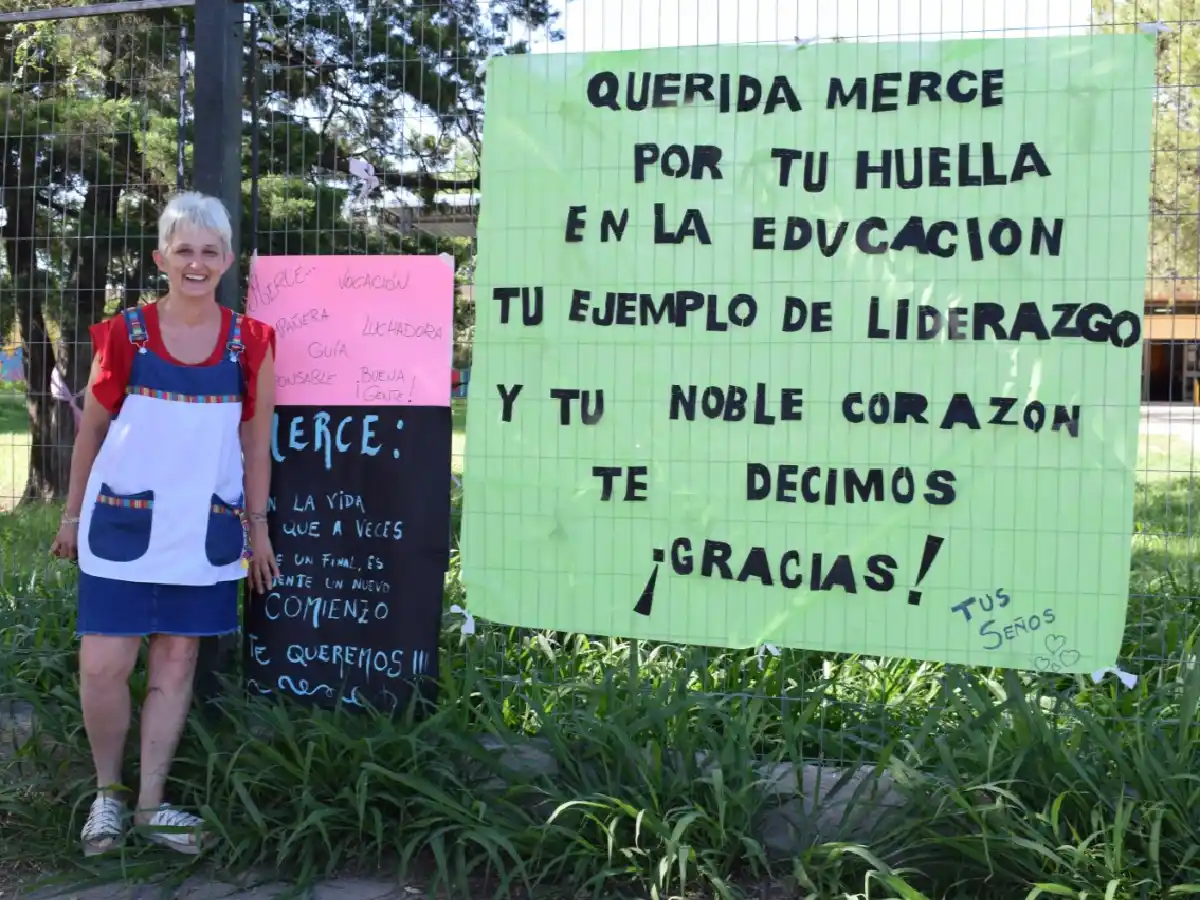 MERLE...
VOCACIÓN
LUCHADORA
GUÍA
BUENA
¡GENTE!
MERCE:
LA VIDA
QUE A VECES
UN FINAL, ES
UN NUEVO
COMIENZO
TE QUEREMOS!!!
QUERIDA MERCE
POR TU HUELLA
EN LA EDUCACION
TU EJEMPLO DE LIDERAZGO
Y TU NOBLE CORAZON
TE DECIMOS
¡GRACIAS!
TUS
SEÑOS